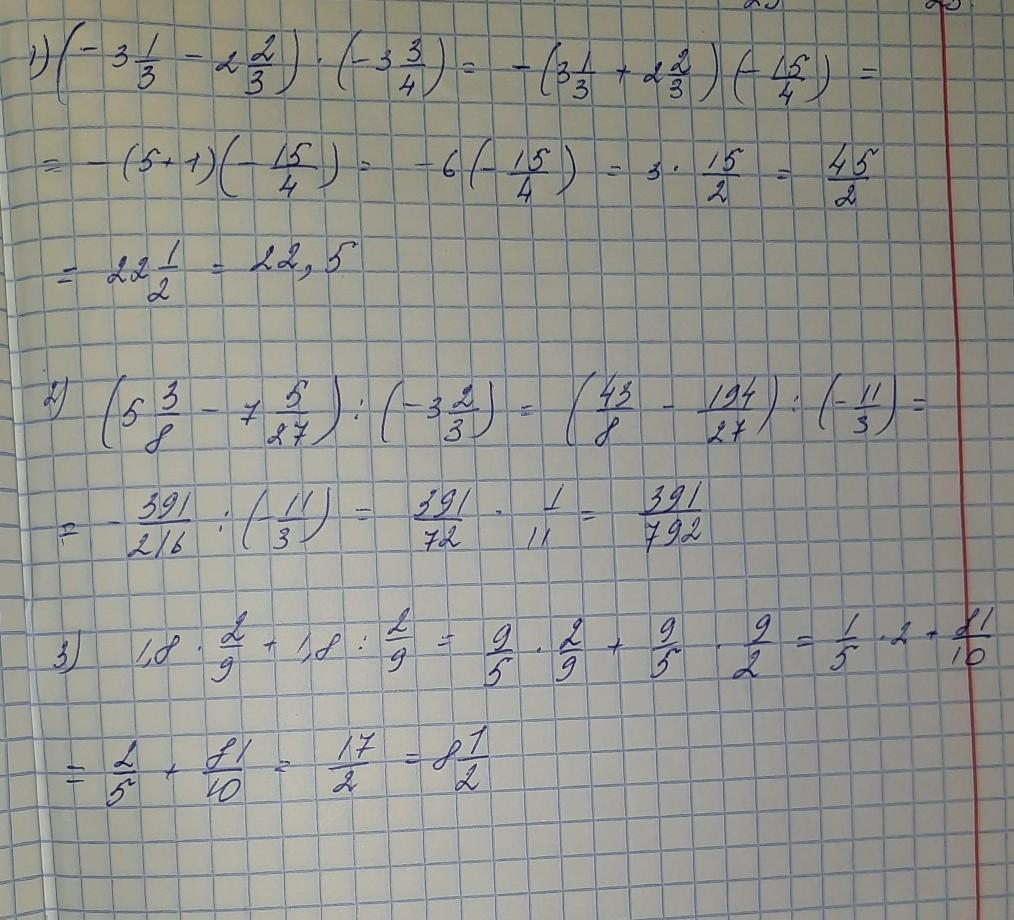 1) (- 3 1/3 - 2 2/3) · (-3 3/4) = -(3 1/3 + 2 2/3)(- 15/4) =
= - (5+1)(- 15/4) = -6(- 15/4) = 3 · 15/2 = 45/2
= 22 1/2 = 22,5
2) (5 3/8 - 7 5/27) : (-3 2/3) = (43/8 - 194/27) : (- 11/3) =
= - 391/216 : (- 11/3) = 391/72 · 1/11 = 391/792
3) 1,8 · 2/9 + 1,8 : 2/9 = 9/5 · 2/9 + 9/5 · 9/2 = 1/5 · 2 + 81/10
= 2/5 + 81/10 = 17/2 = 8 1/2